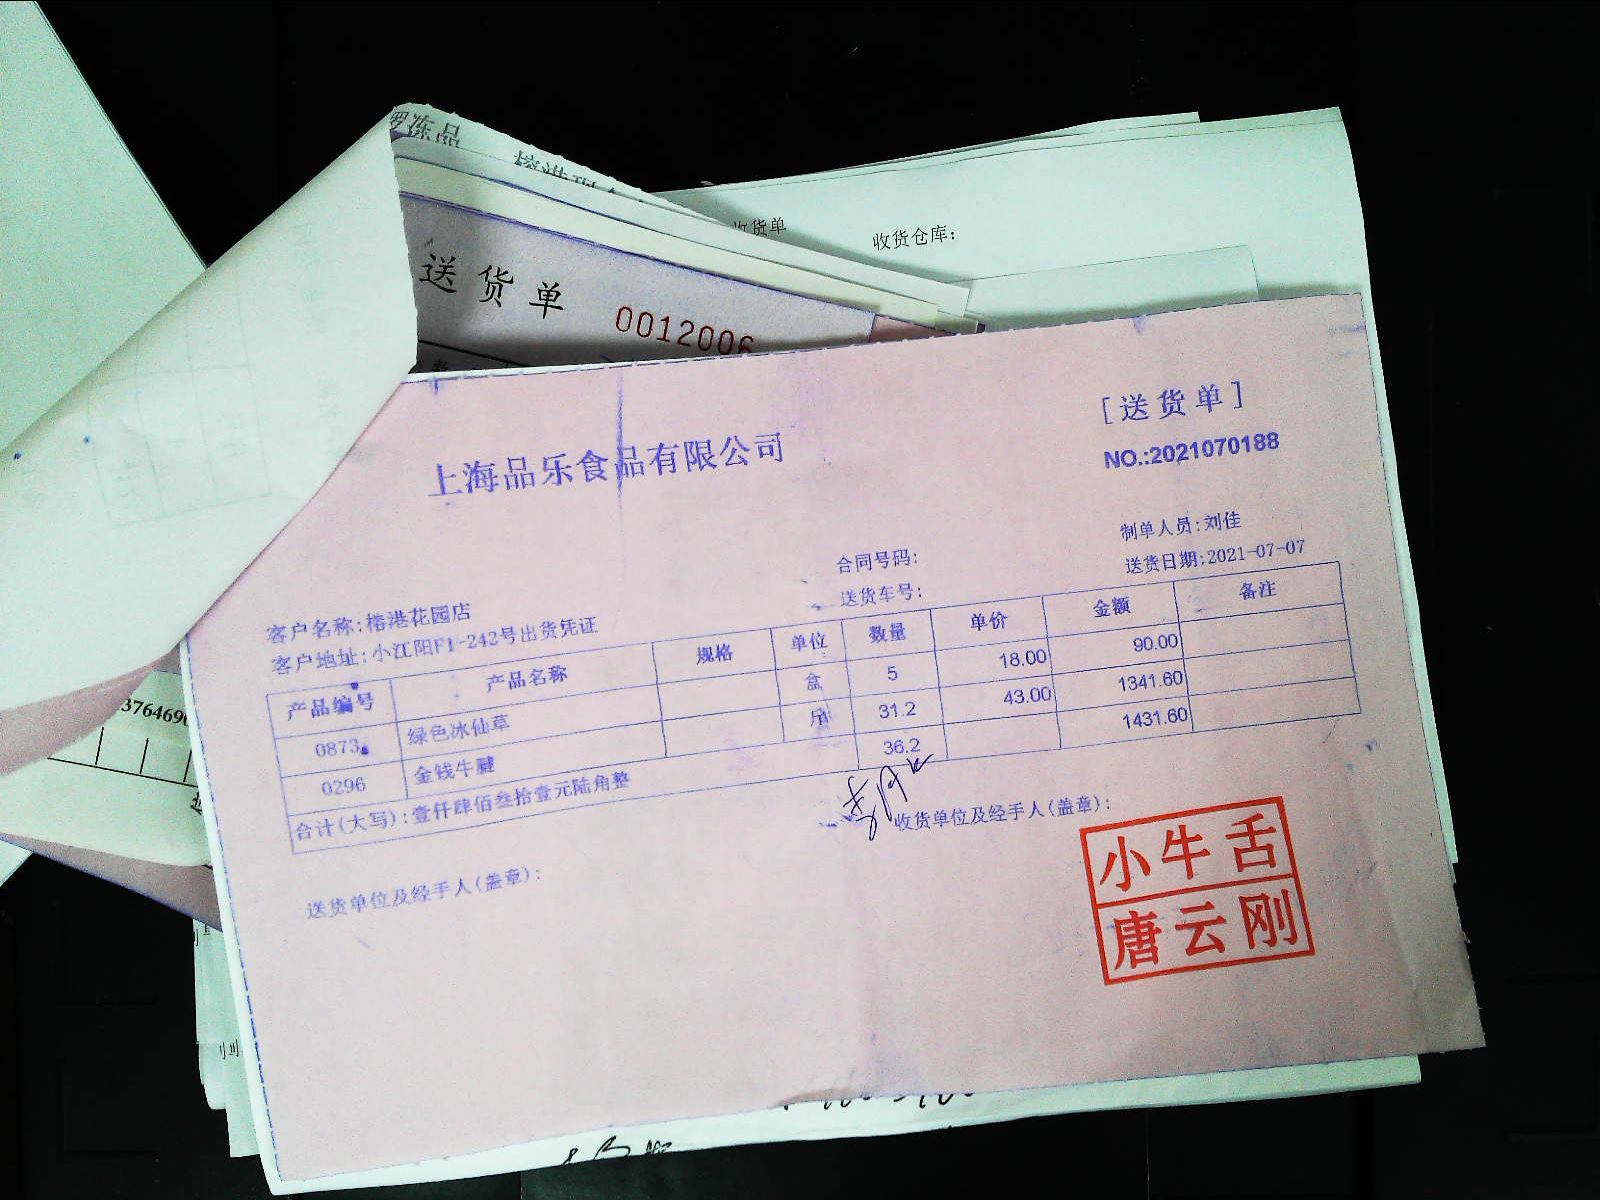 冻品
收货单
收货仓库:
送货单
0012006
[送货单]
上海品乐食品有限公司
NO.:2021070188
制单人员:刘佳
合同号码:
送货日期:2021-07-07
送货车号:
客户名称:榕港花园店
客户地址:小江阳F1-242号出货凭证
产品编号 产品名称 规格 单位 数量 单价 金额 备注
0873 绿色冰仙草 盒 5 18.00 90.00
0296 金钱牛腱 斤 31.2 43.00 1341.60
合计(大写):壹仟肆佰叁拾壹元陆角整 36.2 1431.60
收货单位及经手人(盖章):
送货单位及经手人(盖章):
小牛舌
唐云刚
376469